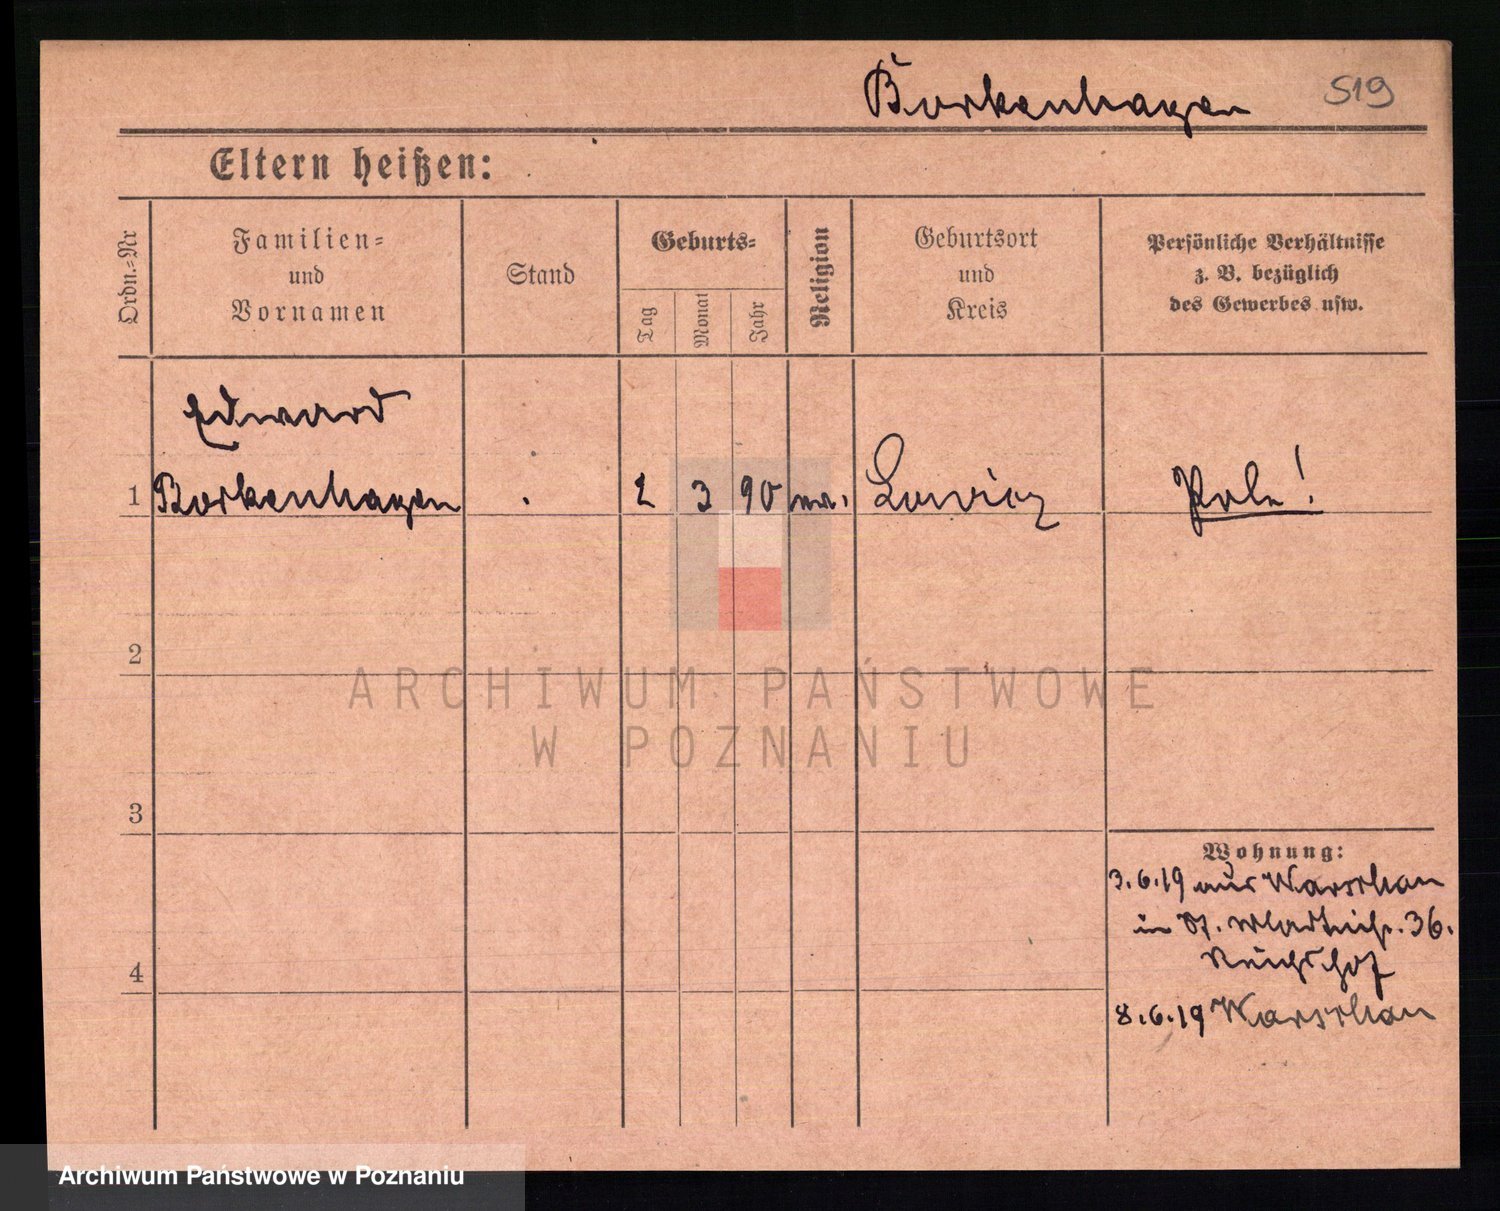 Borkenhagen 519
Eltern heißen:
Ordn.=Nr
Familien=
und
Vornamen
Stand
Geburts=
Tag
Monat
Jahr
Religion
Geburtsort
und
Kreis
Persönliche Verhältnisse
z. B. bezüglich
des Gewerbes usw.
Edward
1 Borkenhagen . 2 3 90 Lowicz Pole!
2
ARCHIWUM PAŃSTWOWE
W POZNANIU
3
Wohnung:
3.6.19 aus Warschau
in 36.
Reichshof
4
8.6.19 Warschau
Archiwum Państwowe w Poznaniu